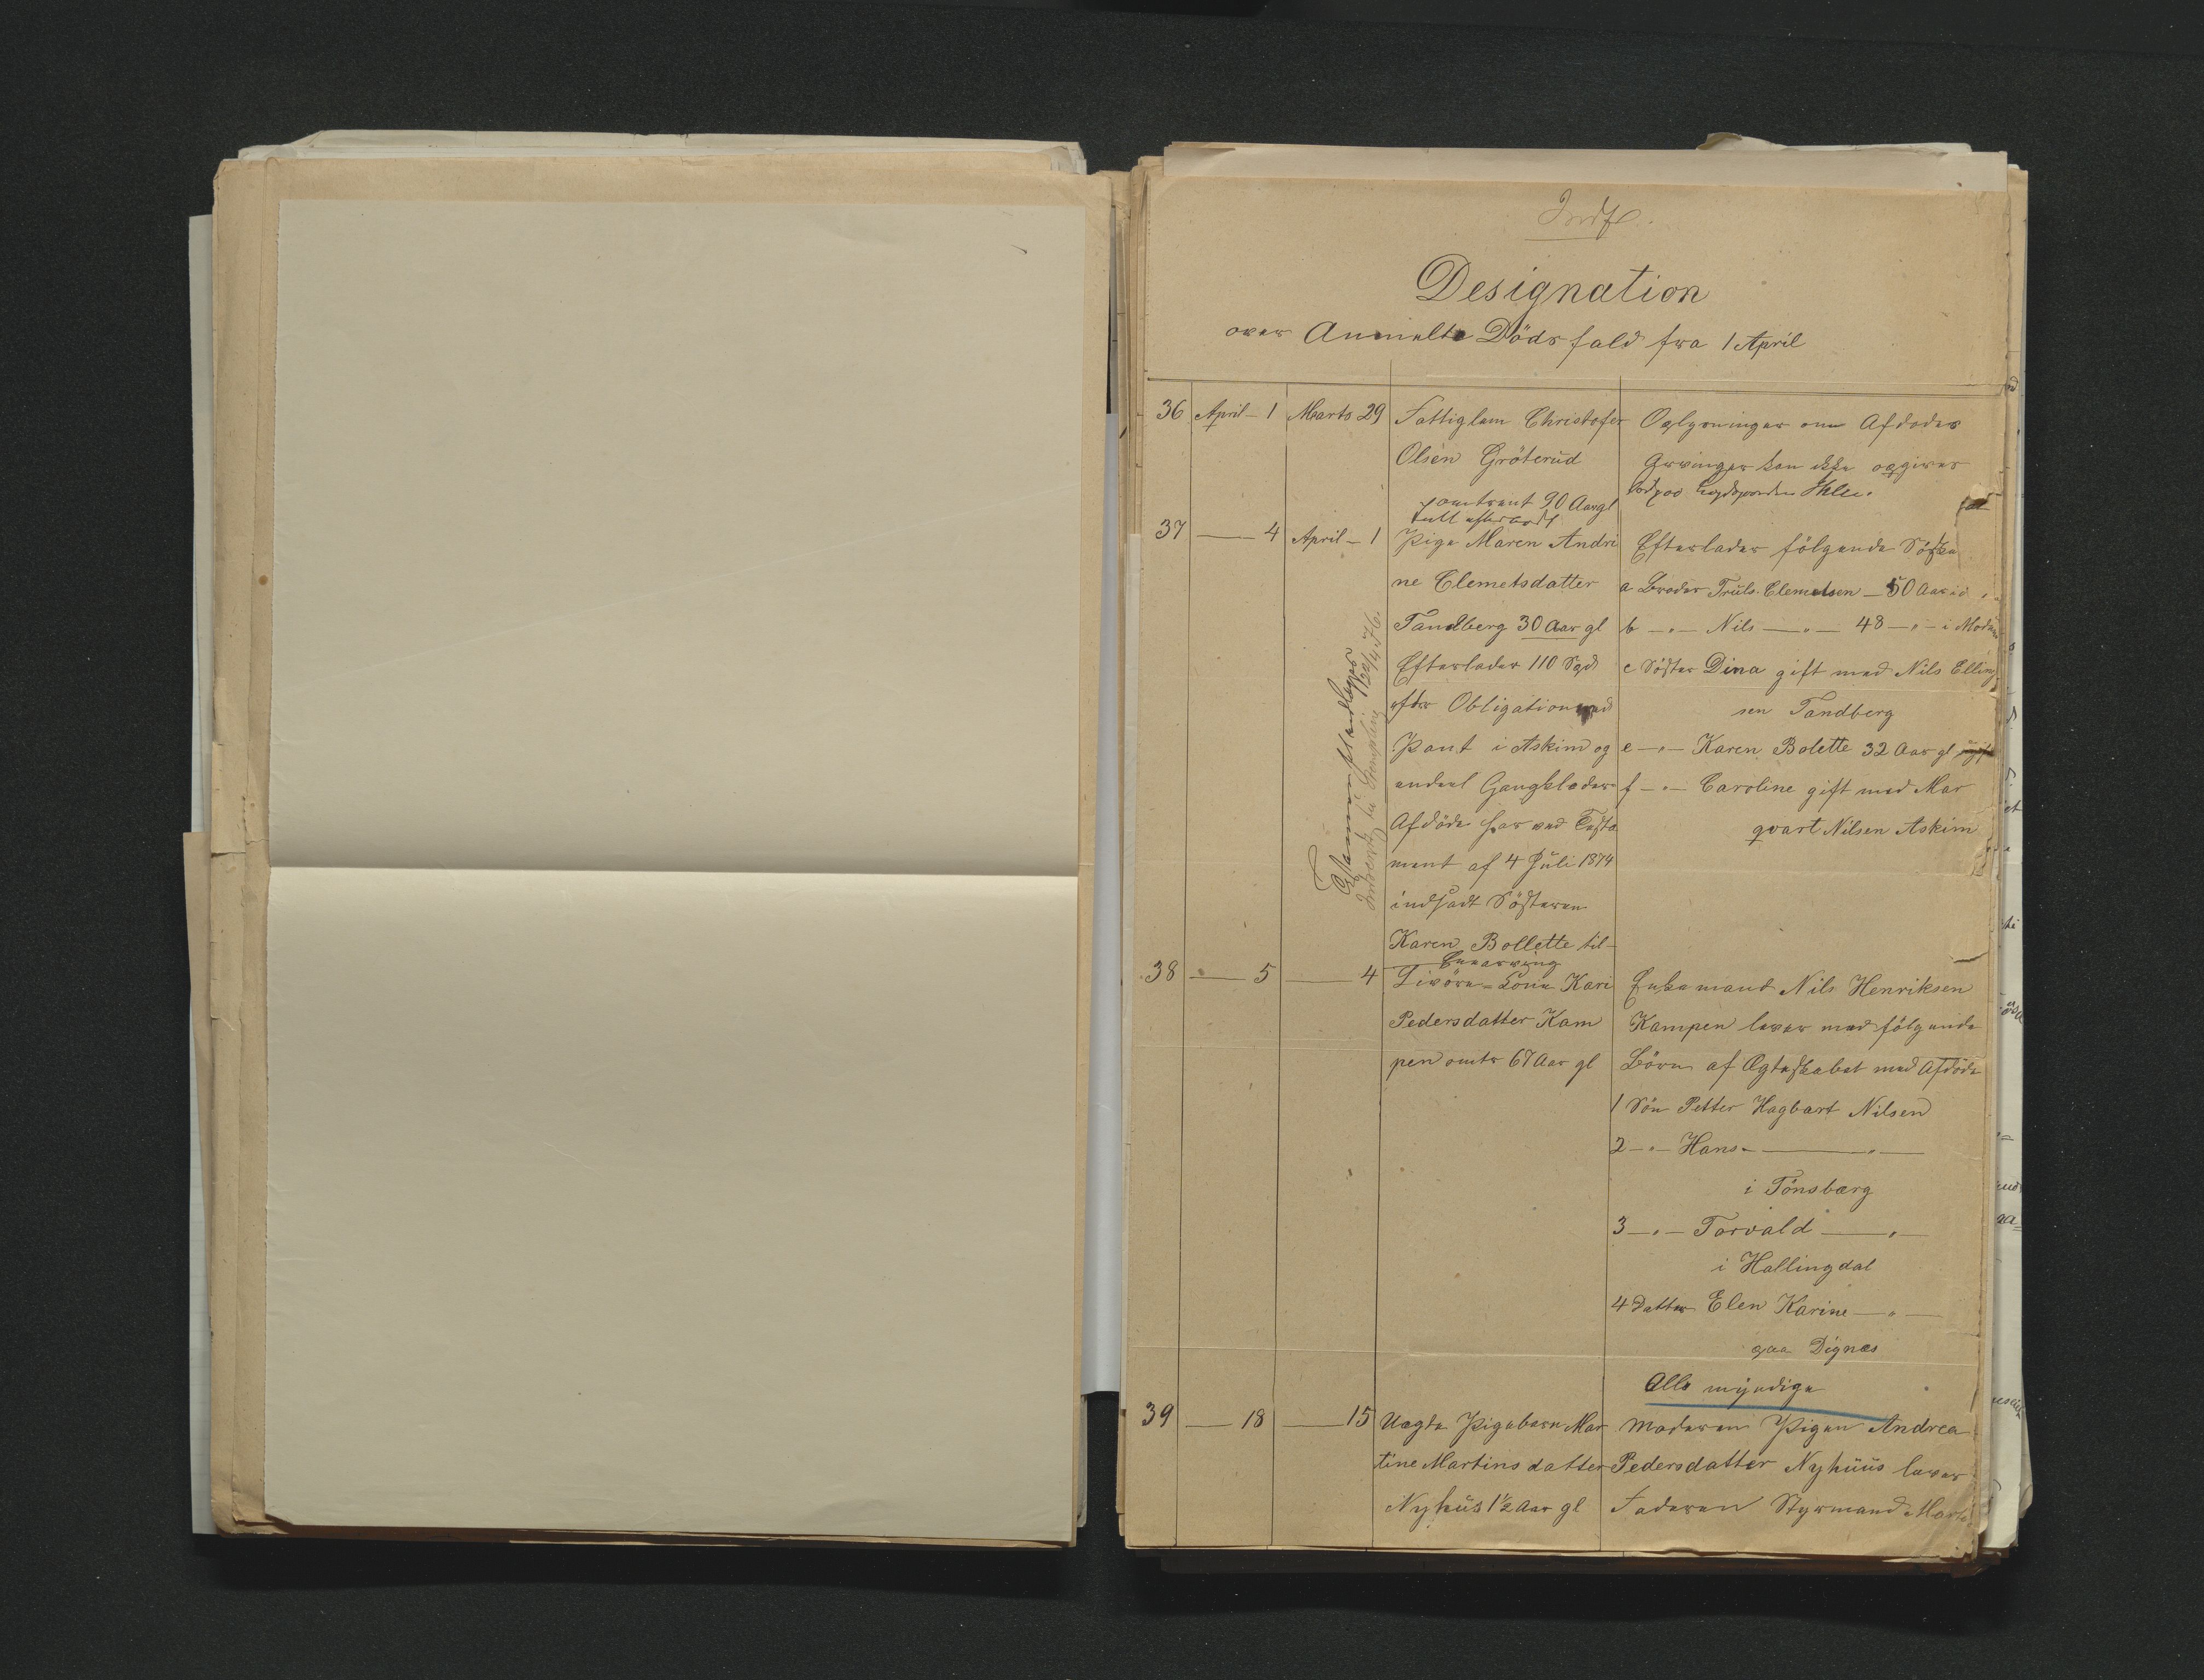 Indf.
Designation
over Anmeldte Dödsfald fra 1 April
36 April - 1 Marts 29 Fattiglem Christofer
Olsen Gröterud
omtrent 90 Aar gl
Oplysninger om Afdödes
Arvinger kan ikke opgives
37 — 4 April - 1 Pige Maren Andri
ne Clemetsdatter
Tandberg 30 Aar gl
Efterlader 110 Spd
efter Obligation med
Pant i Askim og
endeel Gangklæder
Afdöde har ved Testa
ment af 4 Juli 1874
indsadt Söstren
Karen Bollette til
Enearving
Testamentet
22/4 76.
Efterlader fölgende Södsken
a Broder Truls Clemetsen - 50 Aar
b -"- Nils -"- 48 -"- i Modum
c Söster Dina gift med Nils Elling
sen Tandberg
e -"- Karen Bolette 32 Aar gl ugift
f -"- Caroline gift med Mar
qvart Nilsen Askim
38 — 5 — 4 Livöre-Kone Kari
Pedersdatter Kam
pen omtr 67 Aar gl
Enkemand Nils Henriksen
Kampen lever med fölgende
Börn af Ægteskabet med Afdöde
1 Sön Petter Hagbart Nilsen
2 -"- Hans -"-
i Tönsberg
3 -"- Torvald -"-
i Hallingdal
4 Datter Elen Karine -"-
paa Dignæs
Alle myndige
39 — 18 — 15 Uægte Pigebarn Mar
tine Martinsdatter
Nyhus 1½ Aar gl
Moderen Pigen Andrea
Pedersdatter Nyhuus lever
Faderen Styrmand Marti